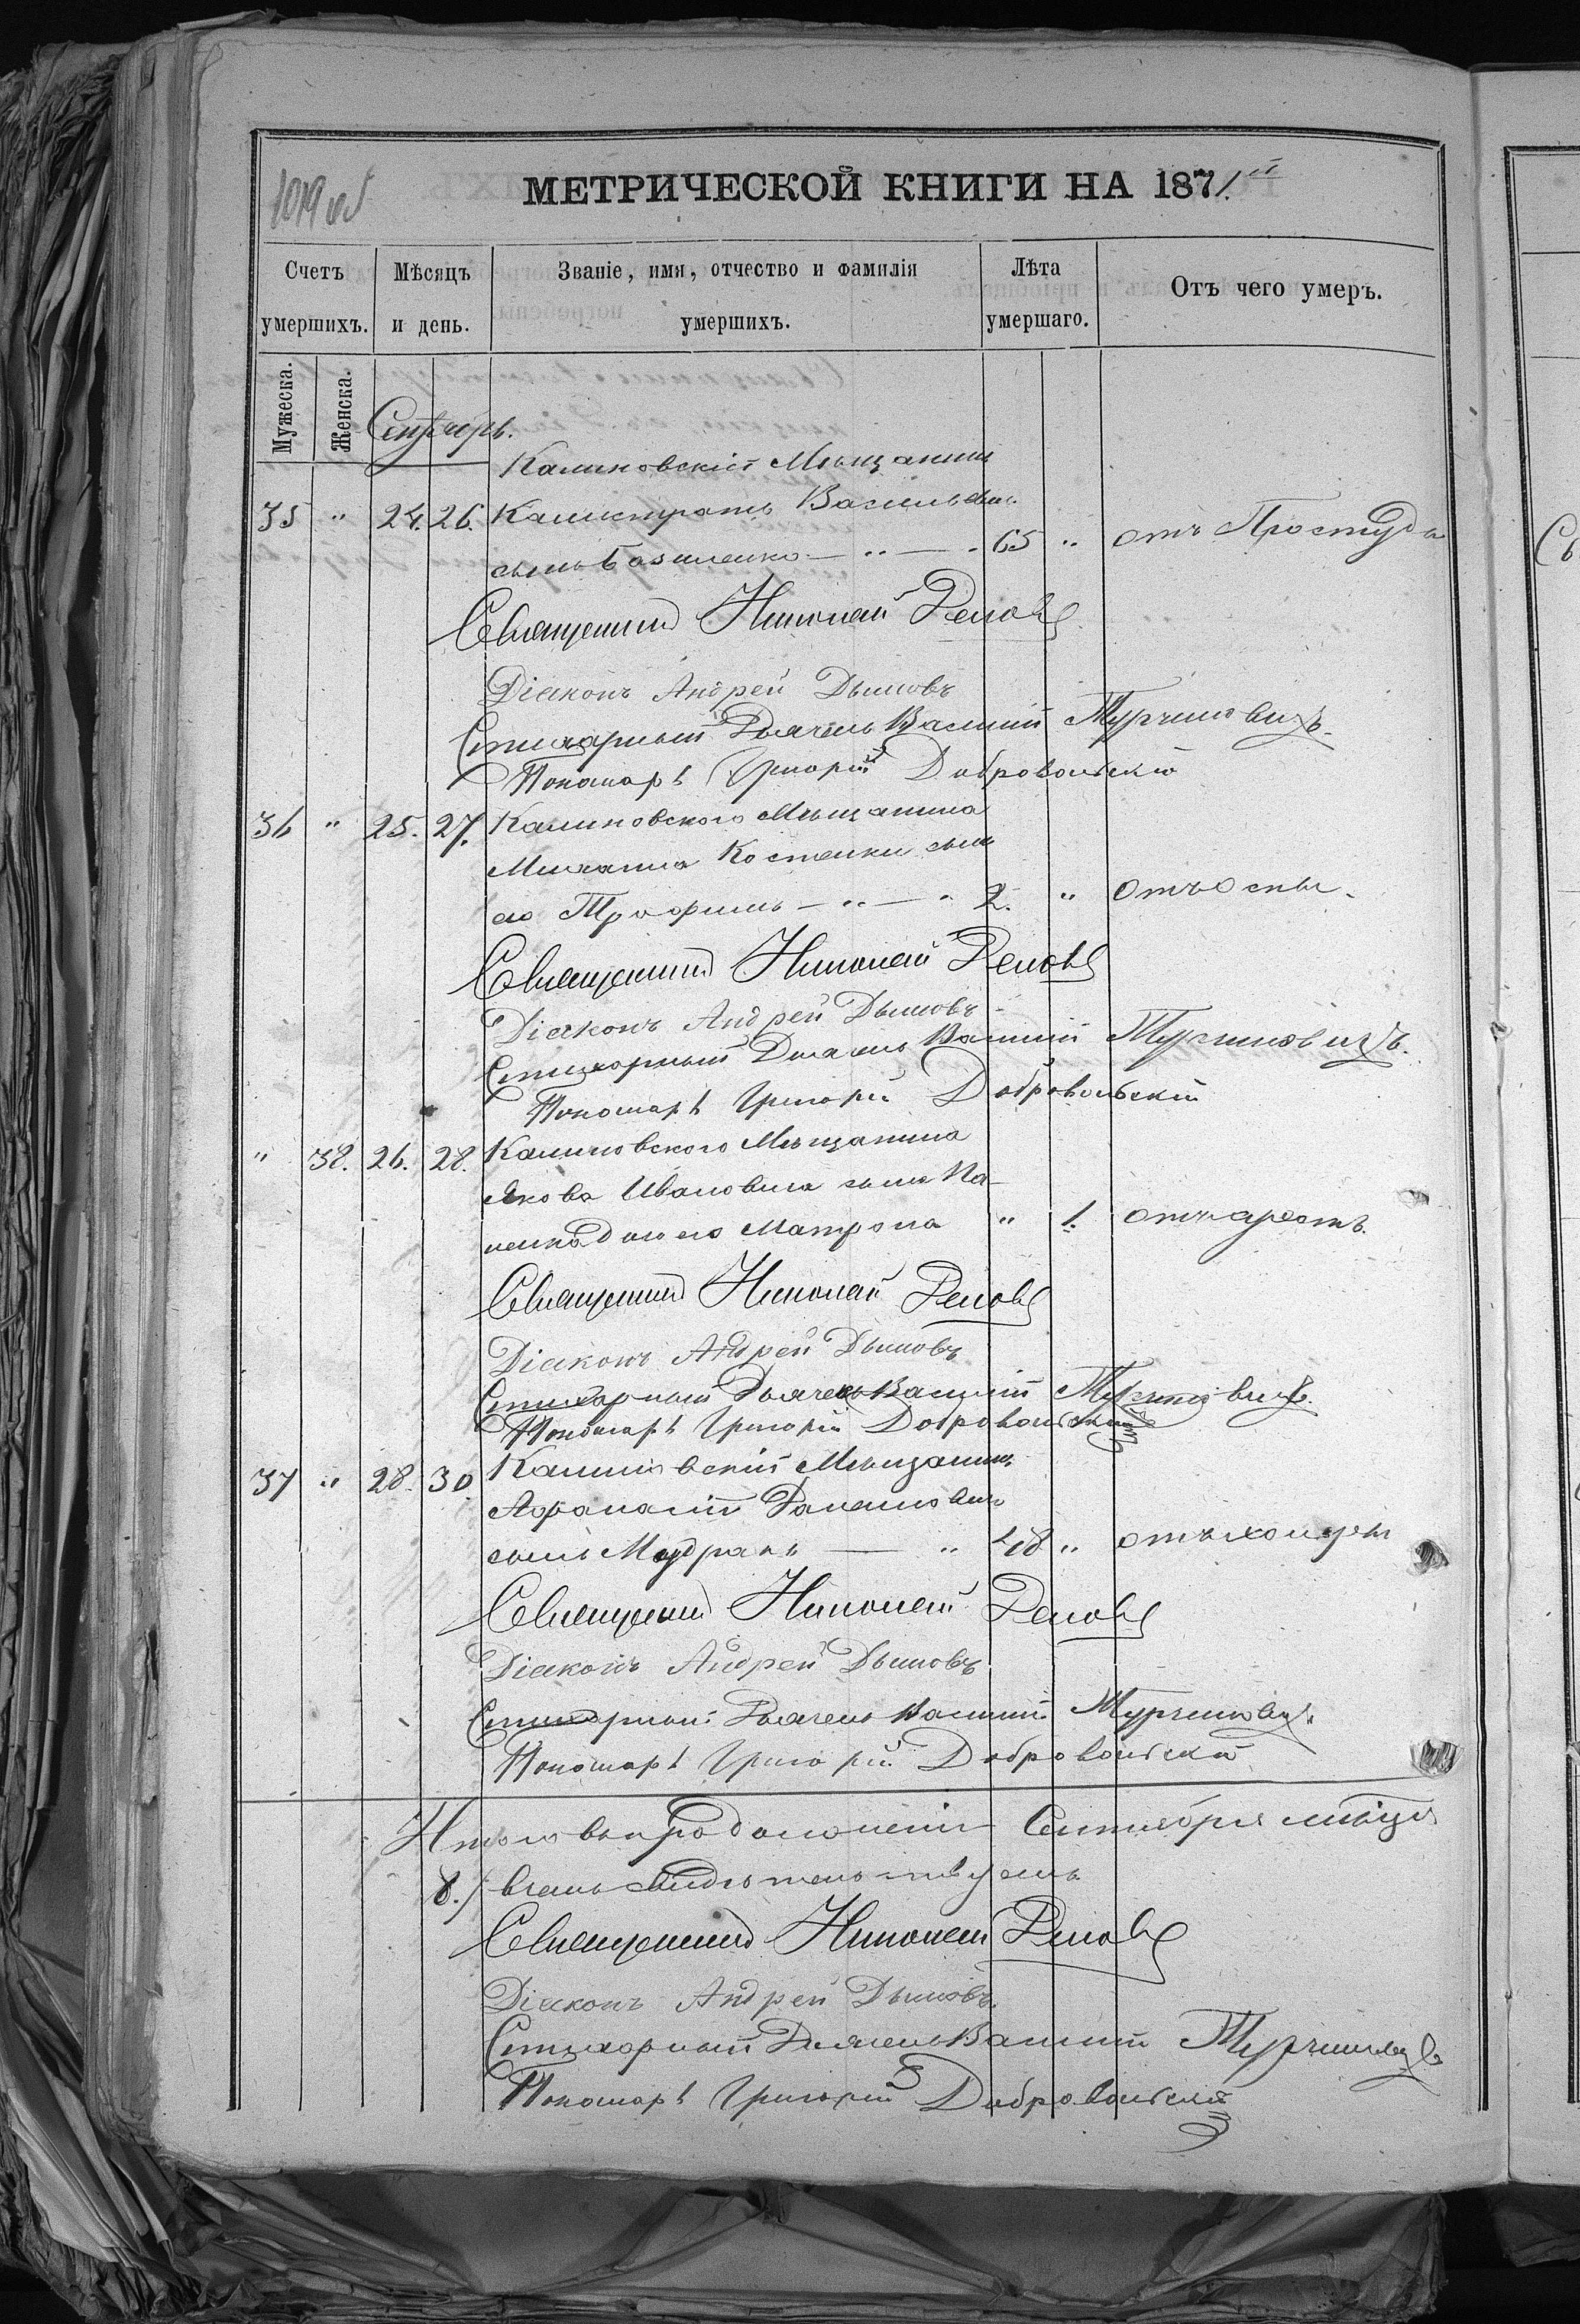 1019 об
МЕТРИЧЕСКОЙ КНИГИ НА 1871.й
Счетъ умершихъ.
Мѣсяцъ и день.
Званіе, имя, отчество и фамилія умершихъ.
Лѣта умершаго.
Отъ чего умеръ.
Мужеска.
Женска.
Сентябрь.
Калиновскій Мѣщанинъ
35 " 24. 26. Калистратъ Васильевъ
сынъ Базиленко — " — " 65 " отъ Простуды
Священникъ Николай
Діаконъ Андрей Дымовъ
Стихарный Дьячекъ Василій
Пономарь Григорій Добровольскій
36 " 25. 27. Калиновского Мѣщанина
Михаила Костенки сынъ
его Трофимъ — " — " 2. " отъ оспы.
Священникъ Николай
Діаконъ Андрей Дымовъ
Стихарный Дьячекъ Василій
Пономарь Григорій Добровольскій
" 38. 26. 28. Калиновского Мѣщанина
Якова Иванова сына
дочь его Матрона " 1.
Священникъ Николай
Діаконъ Андрей Дымовъ
Стихарный Дьячекъ Василій
Пономарь Григорій Добровольскій
37 " 28. 30. Калиновскій Мѣщанинъ
Афанасій
сынъ — " 48 " отъ холеры
Священникъ Николай
Діаконъ Андрей Дымовъ
Стихарный Дьячекъ Василій
Пономарь Григорій Добровольскій
Итого въ продолженіи Сентября мѣсяца
8./ въ чемъ свидѣтельствуемъ
Священникъ Николай
Діаконъ Андрей Дымовъ.
Стихарный Дьячекъ Василій
Пономарь Григорій Добровольскій